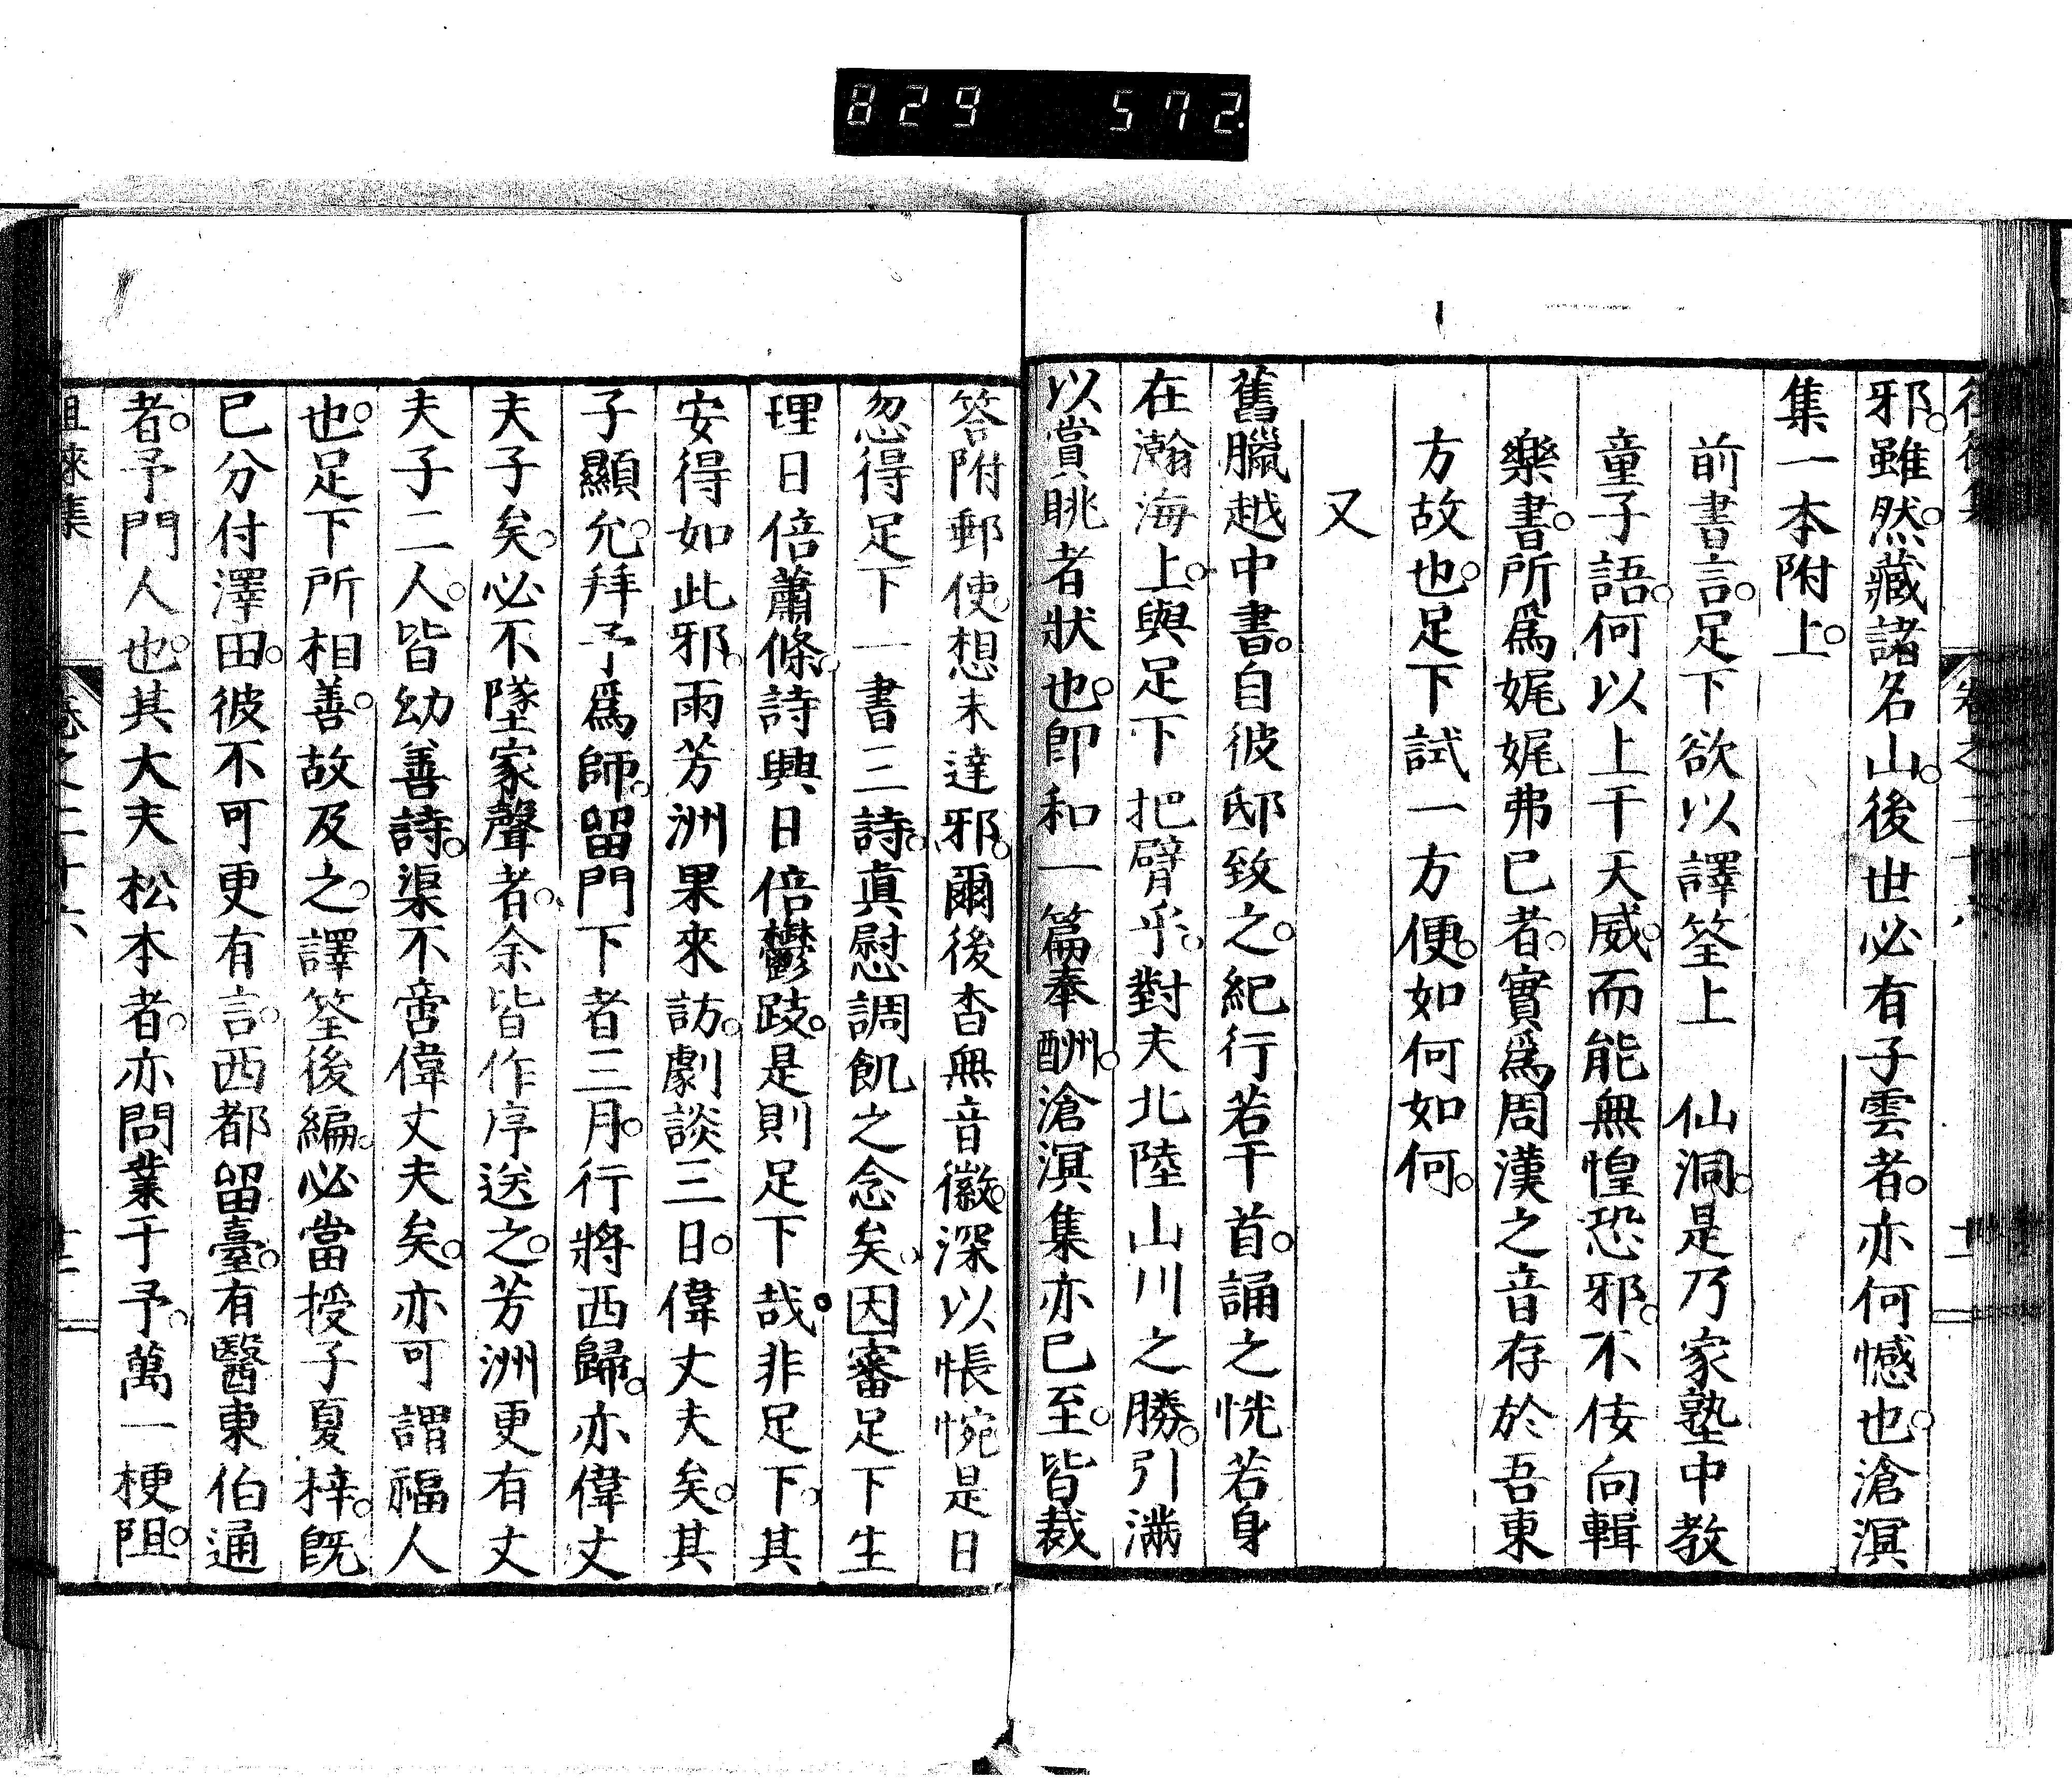 829 572
邪。雖然。藏諸名山。後世必有子雲者。亦何憾也。滄溟
集一本附上。
前書言。足下欲以譯筌上　仙洞。是乃家塾中教
童子語。何以上干天威。而能無惶恐邪。不佞向輯
樂書。所爲娓娓弗已者。實爲周漢之音存於吾東
方故也。足下試一方便。如何如何。
又
舊臘越中書。自彼邸致之。紀行若干首。誦之恍若身
在瀚海上。與足下把臂乎。對夫北陸山川之勝。引滿
以賞眺者狀也。卽和一篇奉酬。滄溟集亦已至。皆裁
答附郵使。想未達邪。爾後杳無音徽。深以悵惋。是日
忽得足下一書三詩。眞慰調飢之念矣。因審足下生
理日倍蕭條。詩興日倍鬱跂。是則足下哉。非足下。其
安得如此邪。雨芳洲果來訪。劇談三日。偉丈夫矣。其
子顯允。拜予爲師。留門下者三月。行將西歸。亦偉丈
夫子矣。必不墜家聲者。余皆作序送之。芳洲更有丈
夫子二人。皆幼善詩。渠不啻偉丈夫矣。亦可謂福人
也。足下所相善。故及之。譯筌後編。必當授子夏梓。旣
已分付澤田。彼不可更有言。西都留臺。有醫東伯通
者。予門人也。其大夫松本者。亦問業于予。萬一梗阻。
徂徠集　卷之二十六　十二